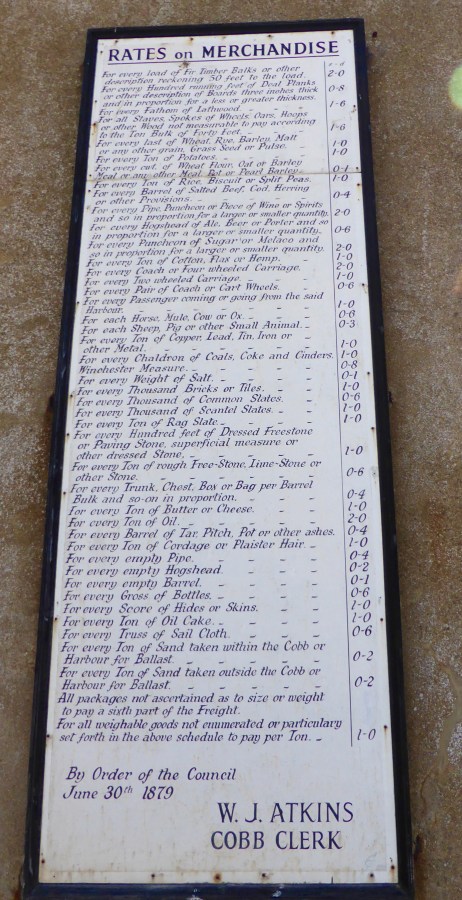 RATES on MERCHANDISE
s - d
For every load of Fir Timber Balks or other
description reckoning 50 feet to the load. 2-0
For every Hundred running feet of Deal Planks
or other description of Boards three inches thick
and in proportion for a less or greater thickness. 0-8
For every Fathom of Lathwood. 1-6
For all Staves, Spokes of Wheels, Oars, Hoops
or other Wood not measurable to pay according
to the Ton Bulk of Forty Feet. 1-6
For every last of Wheat, Rye, Barley, Malt
or any other grain, Grass Seed or Pulse. 1-0
For every Ton of Potatoes. 1-0
For every cwt. of Wheat Flour, Oat or Barley
Meal or any other Meal, Pot or Pearl Barley. 0-1
For every Ton of Rice, Biscuit or Split Peas. 1-0
For every Barrel of Salted Beef, Cod, Herring
or other Provisions. 0-4
For every Pipe, Puncheon or Piece of Wine or Spirits
and so in proportion for a larger or smaller quantity. 2-0
For every Hogshead of Ale, Beer or Porter and so
in proportion for a larger or smaller quantity. 0-6
For every Puncheon of Sugar or Melaco and
so in proportion for a larger or smaller quantity. 2-0
For every Ton of Cotton, Flax or Hemp. 1-0
For every Coach or Four wheeled Carriage. 2-0
For every Two wheeled Carriage. 1-0
For every Pair of Coach or Cart Wheels. 0-6
For every Passenger coming or going from the said
Harbour. 1-0
For each Horse, Mule, Cow or Ox. 0-6
For each Sheep, Pig or other Small Animal. 0-3
For every Ton of Copper, Lead, Tin, Iron or
other Metal. 1-0
For every Chaldron of Coals, Coke and Cinders. 1-0
Winchester Measure. 0-8
For every Weight of Salt. 0-1
For every Thousand Bricks or Tiles. 1-0
For every Thousand of Common Slates. 0-6
For every Thousand of Scantel Slates. 1-0
For every Ton of Rag Slate. 1-0
For every Hundred feet of Dressed Freestone
or Paving Stone, superficial measure or
other dressed Stone. 1-0
For every Ton of rough Free-Stone, Lime-Stone or
other Stone. 0-6
For every Trunk, Chest, Box or Bag per Barrel
Bulk and so-on in proportion. 0-4
For every Ton of Butter or Cheese. 1-0
For every Ton of Oil. 2-0
For every Barrel of Tar, Pitch, Pot or other ashes. 0-4
For every Ton of Cordage or Plaister Hair. 1-0
For every empty Pipe. 0-4
For every empty Hogshead. 0-2
For every empty Barrel. 0-1
For every Gross of Bottles. 0-6
For every Score of Hides or Skins. 1-0
For every Ton of Oil Cake. 1-0
For every Truss of Sail Cloth. 0-6
For every Ton of Sand taken within the Cobb or
Harbour for Ballast. 0-2
For every Ton of Sand taken outside the Cobb or
Harbour for Ballast. 0-2
All packages not ascertained as to size or weight
to pay a sixth part of the Freight.
For all weighable goods not enumerated or particulary
set forth in the above schedule to pay per Ton. 1-0
By Order of the Council
June 30th 1879
W. J. ATKINS
COBB CLERK